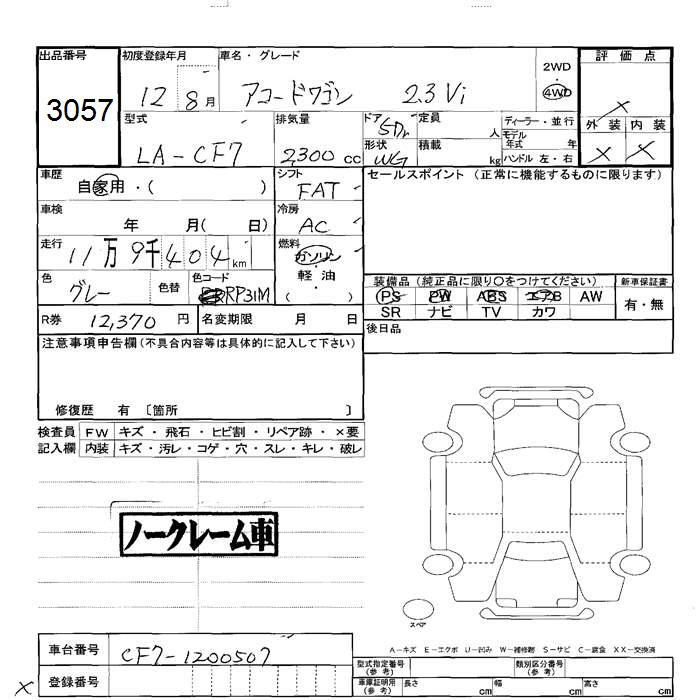 出品番号 初度登録年月 車名・グレード 評価点
3057 12 8月 アコードワゴン 2.3 Vi 2WD 4WD ×
型式 排気量 ドア 定員 ディーラー・並行 外装 内装
LA-CF7 2,300 cc 5Dr 人 モデル年式 年 × ×
形状 積載 ハンドル 左・右
WG kg
車歴 シフト セールスポイント (正常に機能するものに限ります)
自家用・( ) FAT
車検 冷房
年 月( 日) AC
走行 燃料
11万9千404 km ガソリン・軽油( )
色 色替 色コード 装備品 (純正品に限り○をつけてください) 新車保証書
グレー RP31M PS PW ABS エアB AW 有・無
SR ナビ TV カワ
R券 12,370 円 名変期限 月 日 後日品
注意事項申告欄(不具合内容等は具体的に記入して下さい)
修復歴 有 〔箇所 〕
検査員 FW キズ・飛石・ヒビ割・リペア跡・×要
記入欄 内装 キズ・汚レ・コゲ・穴・スレ・キレ・破レ
ノークレーム車
スペア
A-キズ E-エクボ U-凹み W-補修跡 S-サビ C-腐食 XX-交換済
車台番号 CF7-1200507
型式指定番号(参考) 類別区分番号(参考)
× 登録番号
車庫証明用(参考) 長さ cm 幅 cm 高さ cm